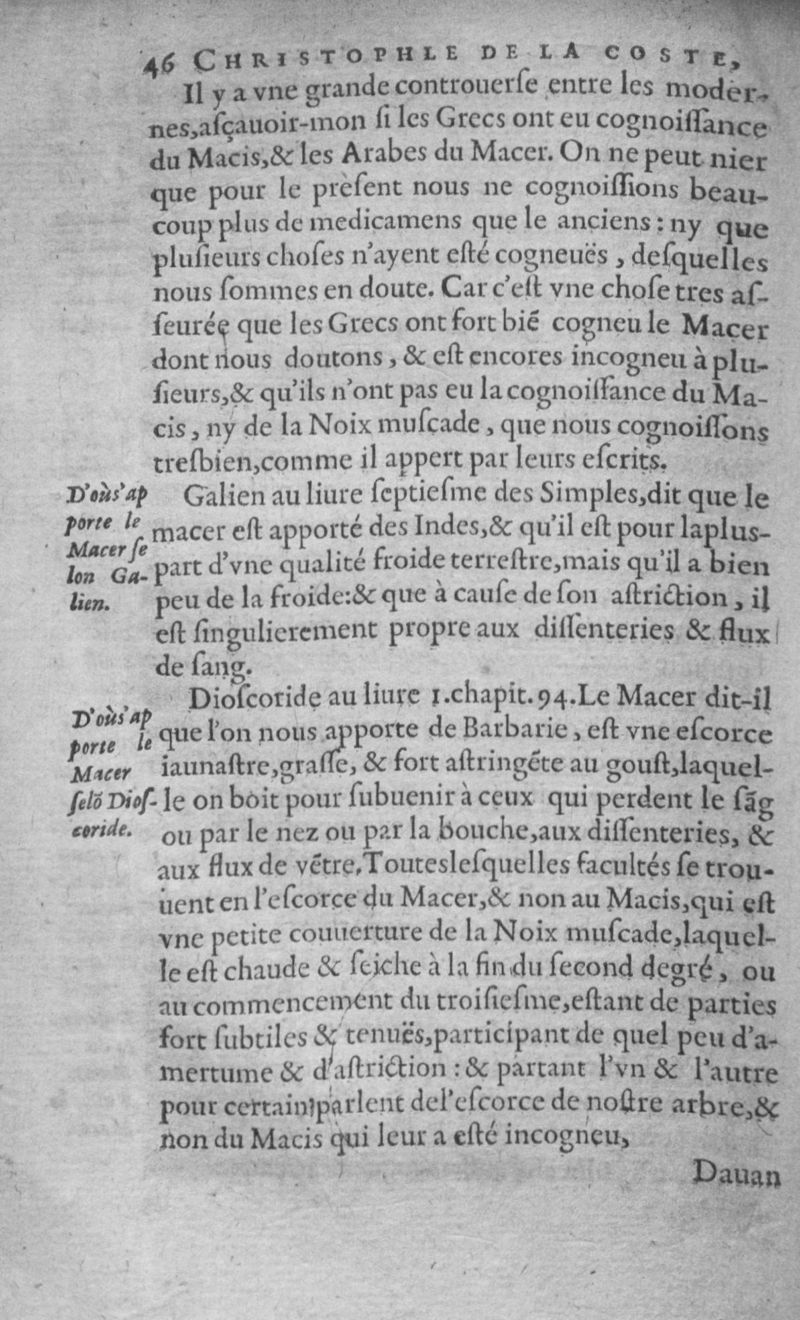 46 CHRISTOPHLE DE LA COSTE,
Il y a vne grande controuerſe entre les moder-
nes,aſçauoir-mon ſi les Grecs ont eu cognoiſſance
du Macis,& les Arabes du Macer. On ne peut nier
que pour le prèſent nous ne cognoiſſions beau-
coup plus de medicamens que le anciens : ny que
pluſieurs choſes n'ayent eſté cogneuës , deſquelles
nous ſommes en doute. Car c'eſt vne choſe tres aſ-
ſeurée que les Grecs ont fort biẽ cogneu le Macer
dont nous doutons , & eſt encores incogneu à plu-
ſieurs,& qu'ils n'ont pas eu la cognoiſſance du Ma-
cis , ny de la Noix muſcade , que nous cognoiſſons
treſbien,comme il appert par leurs eſcrits.
D'où s'ap
porte le
Macer ſe
lon Ga-
lien.
Galien au liure ſeptieſme des Simples,dit que le
macer eſt apporté des Indes,& qu'il eſt pour laplus-
part d'vne qualité froide terreſtre,mais qu'il a bien
peu de la froide:& que à cauſe de ſon aſtriction , il
eſt ſingulierement propre aux diſſenteries & flux
de ſang.
D'où s'ap
porte le
Macer
ſelõ Dioſ-
coride.
Dioſcoride au liure 1.chapit.94.Le Macer dit-il
que l'on nous apporte de Barbarie , eſt vne eſcorce
iaunaſtre,graſſe, & fort aſtringẽte au gouſt,laquel-
le on boit pour ſubuenir à ceux qui perdent le ſãg
ou par le nez ou par la bouche,aux diſſenteries, &
aux flux de vẽtre,Touteslefquelles facultés ſe trou-
uent en l'eſcorce du Macer,& non au Macis,qui eſt
vne petite couuerture de la Noix muſcade,laquel-
le eſt chaude & ſeiche à la fin du ſecond degré , ou
au commencement du troiſieſme,eſtant de parties
fort ſubtiles & tenuës,participant de quel peu d'a-
mertume & d'aſtriction : & partant l'vn & l'autre
pour certain parlent del'eſcorce de noſtre arbre,&
non du Macis qui leur a eſté incogneu,
Dauan